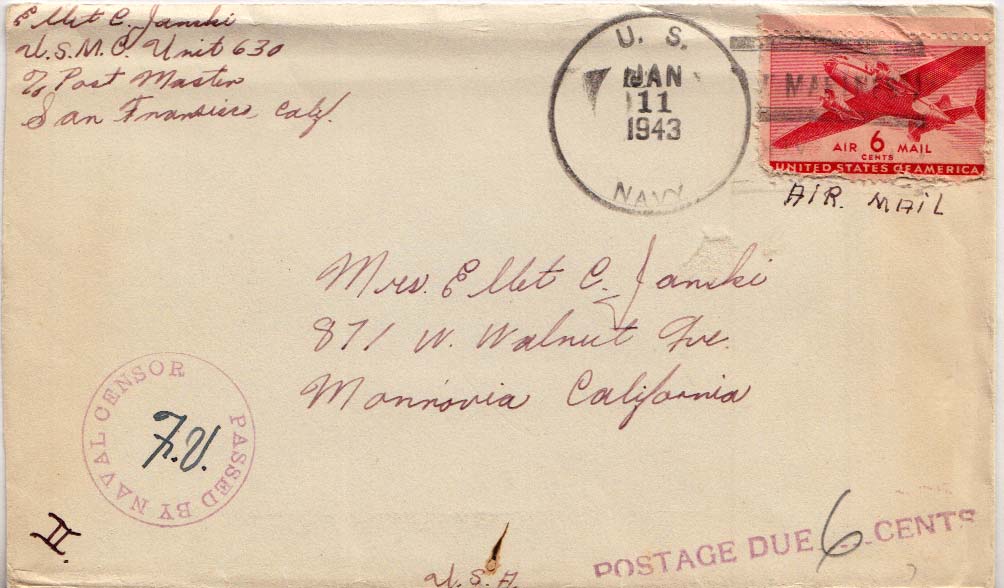 Ellet C. Janski
U.S.M.C. Unit 630
℅ Post Master
San Fransisco, Calif.
U. S.
JAN
11
1943
NAVY
AIR 6 MAIL
CENTS
UNITED STATES OF AMERICA
AIR. MAIL
Mrs. Ellet C. Janski
871 W. Walnut Ave.
Monrovia California
PASSED BY NAVAL CENSOR
F.V.
II
POSTAGE DUE 6 CENTS
U.S.A.